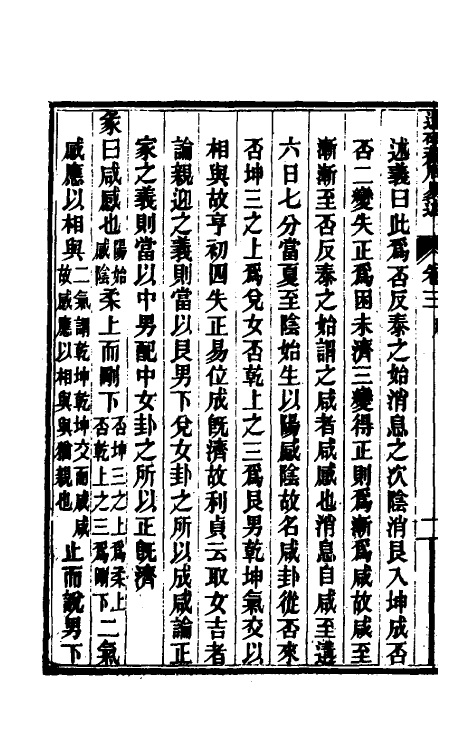 述義曰此爲否反泰之始消息之次陰消艮入坤成否
否二變失正爲困未濟三變得正則爲漸爲咸故咸至
漸漸至否反泰之始謂之咸者咸感也消息自咸至遘
六日七分當夏至陰始生以陽感陰故名咸卦從否來
否坤三之上爲兌女否乾上之三爲艮男乾坤氣交以
相與故亨初四失正易位成旣濟故利貞云取女吉者
論親迎之義則當以艮男下兌女卦之所以成咸論正
家之義則當以中男配中女卦之所以正旣濟
彖曰咸感也陽始感陰柔上而剛下否坤三之上爲柔上否乾上之三爲剛下二氣
感應以相與二氣謂乾坤乾坤交而咸咸故感應以相與與猶親也止而說男下
卷三